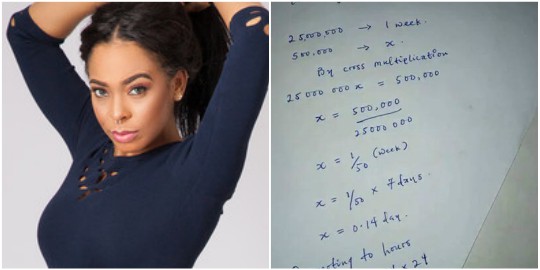 25,000,000 → 1 week.
500,000 → x.
By cross multiplication
25 000 000 x = 500,000
x = 500,000
25000 000
x = 1/50 (week)
x = 1/50 × 7 days.
x = 0.14 day.
to hours
× 24